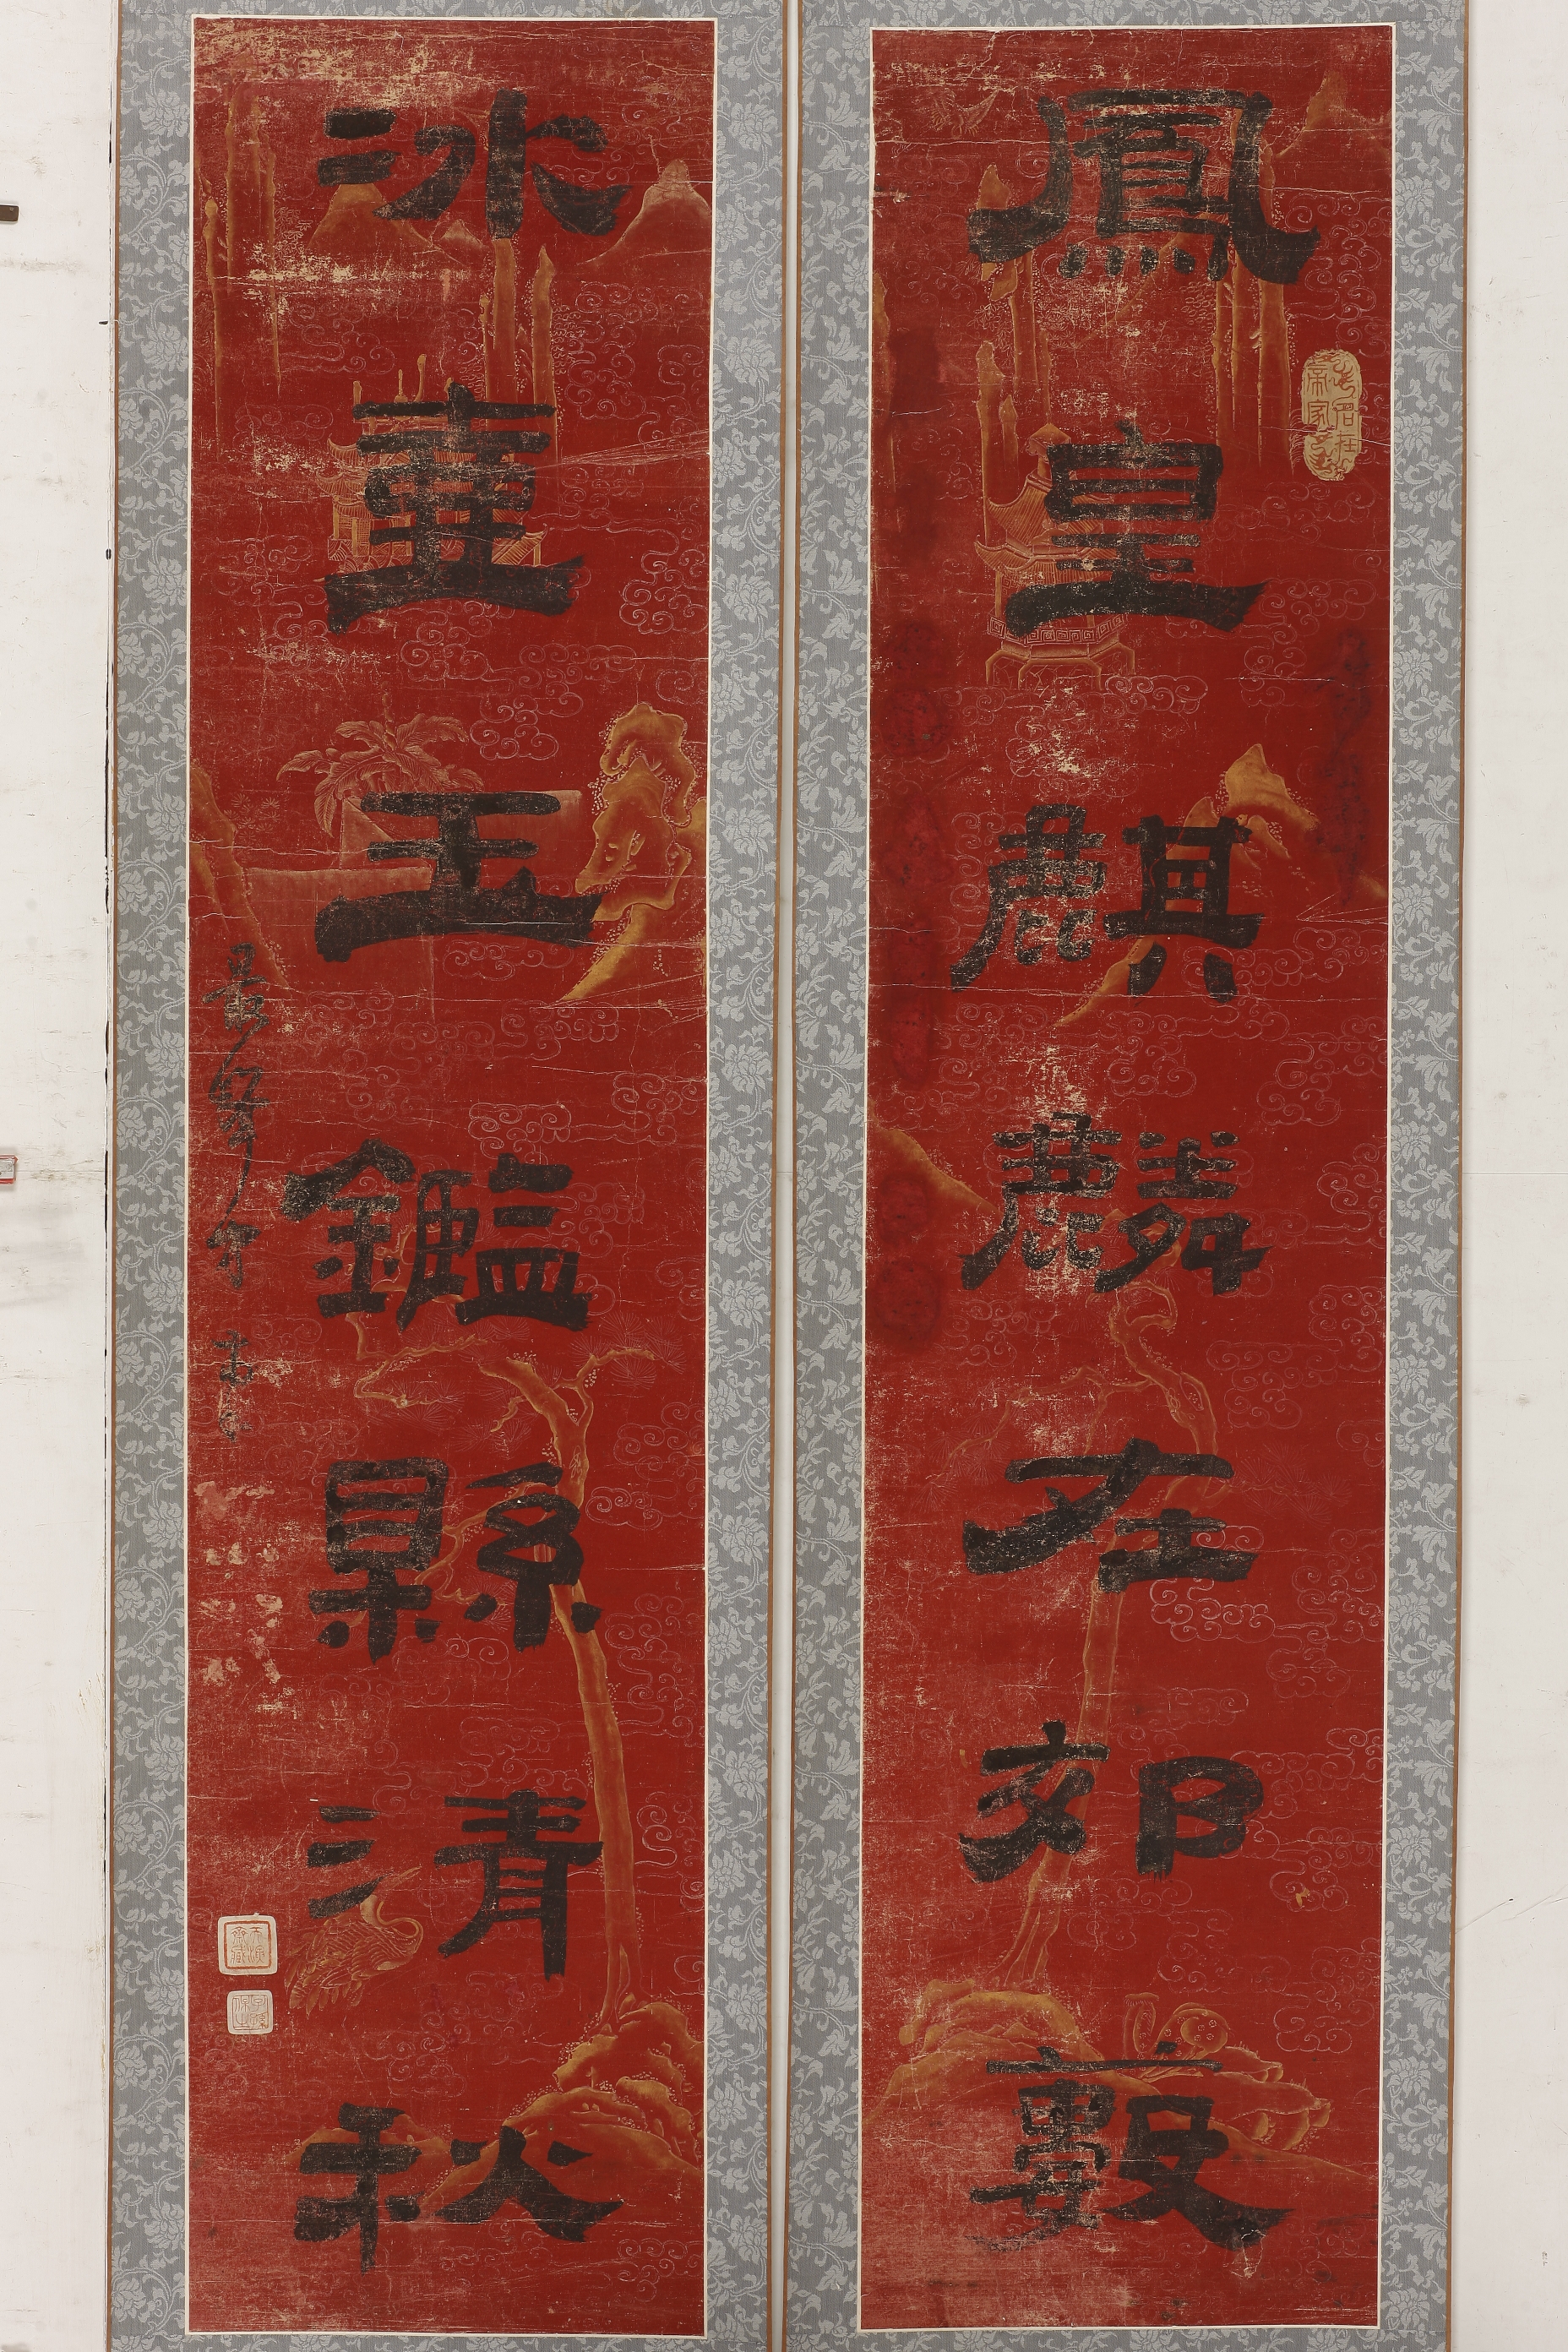 鳳皇麒麟在郊藪
冰壺玉鑑縣清秋